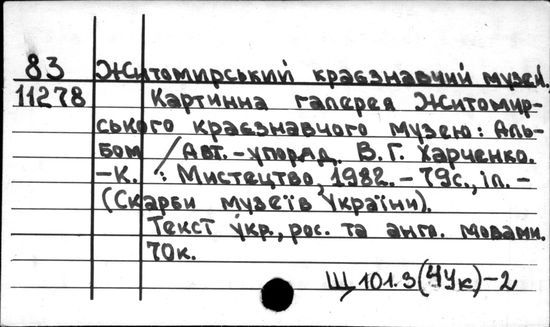 83 Житомирський краєзнавчий музей.
11278 Картинна галерея Житомир-
ського краєзнавчого музею: Аль-
бом / Авт.-упоряд. В.Г. Харченко.
-К. : Мистецтво, 1982. - 79с., іл. -
(Скарби музеїв України).
Текст укр., рос. та англ. мовами.
70к.
Щ 101.3(4Ук)-2